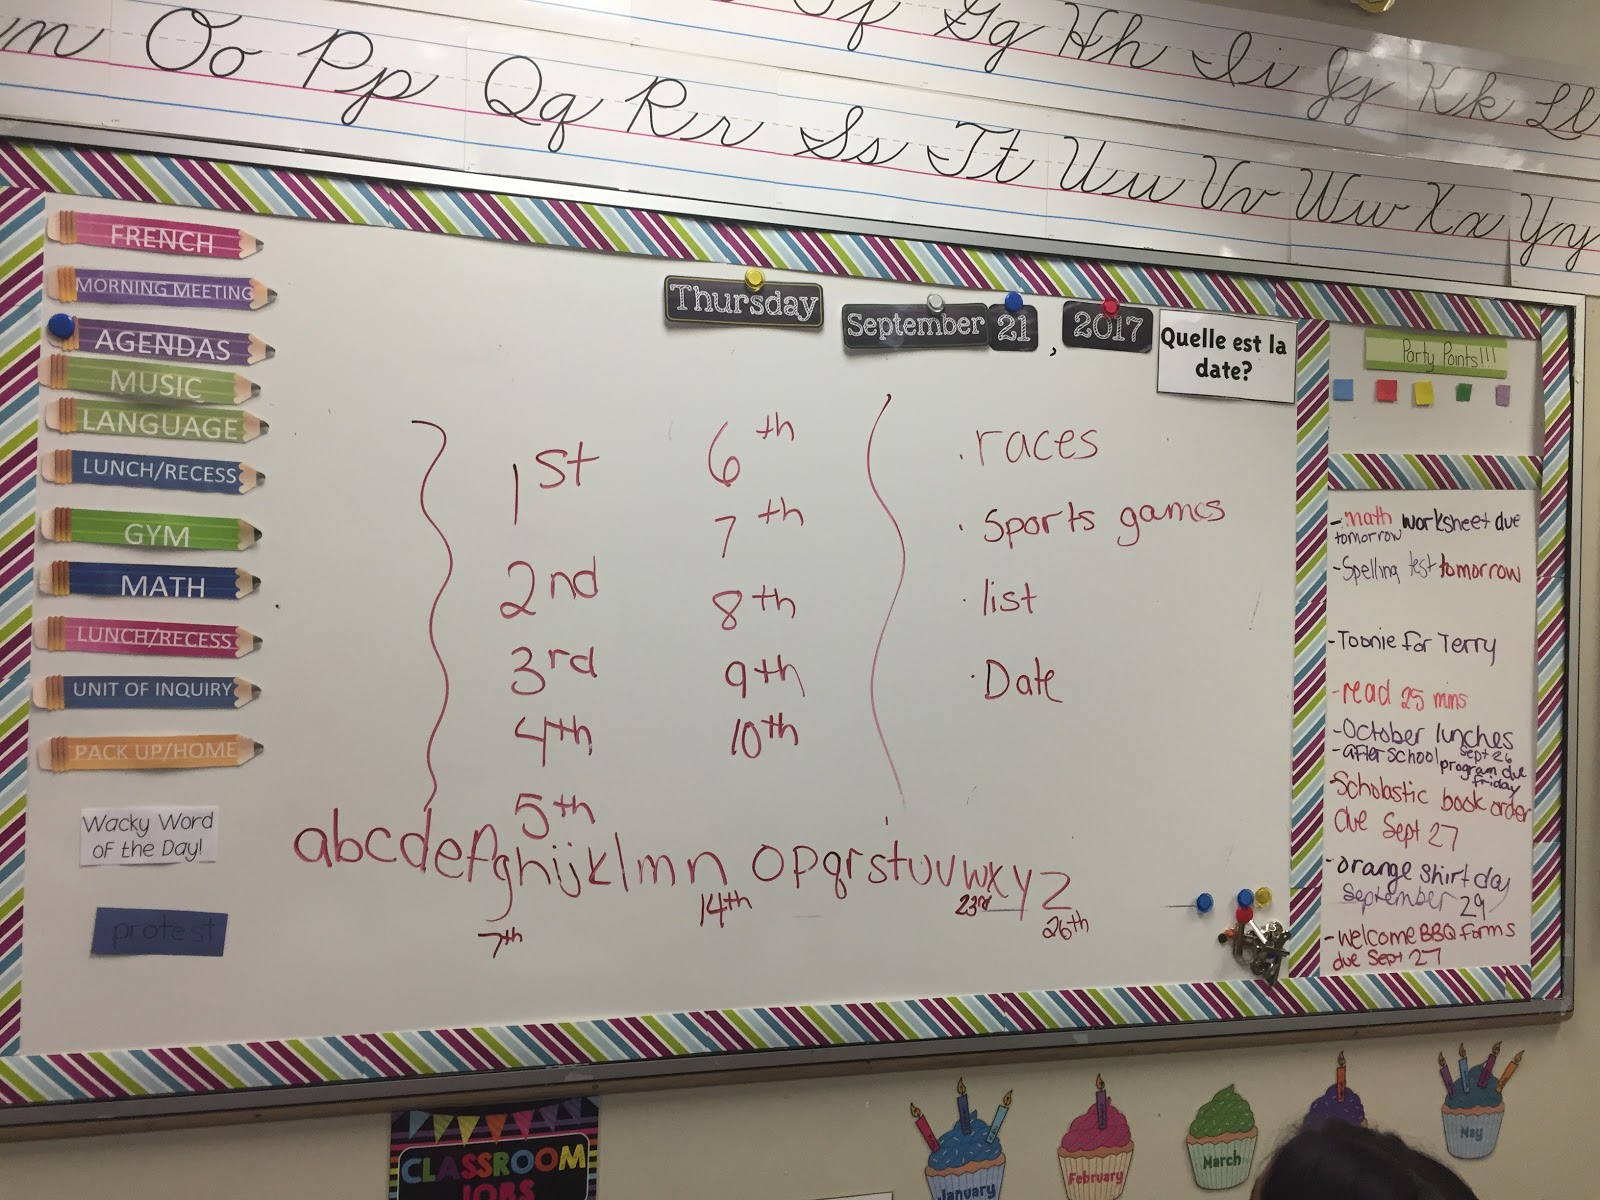 Ff Gg Hh Ii Jj Kk Ll
n Oo Pp Qq Rr Ss Tt Uu Vv Ww Xx Yy
FRENCH
MORNING MEETING
AGENDAS
MUSIC
LANGUAGE
LUNCH/RECESS
GYM
MATH
LUNCH/RECESS
UNIT OF INQUIRY
PACK UP/HOME
Wacky Word
of the Day!
protest
Thursday
September 21, 2017
Quelle est la
date?
1st
2nd
3rd
4th
5th
6th
7th
8th
9th
10th
· races
· Sports games
· list
· Date
abcdefghijklmnopqrstuvwxyz
7th 14th 23rd 26th
Party Points!!!
- math worksheet due
tomorrow
- Spelling test tomorrow
- Toonie for Terry
- read 25 mins
- October lunches
Sept 26
- after school program due
friday
- Scholastic book order
due Sept 27
- orange shirt day
September 29
- welcome BBQ forms
due Sept 27
CLASSROOM
JOBS
January
February
March
May